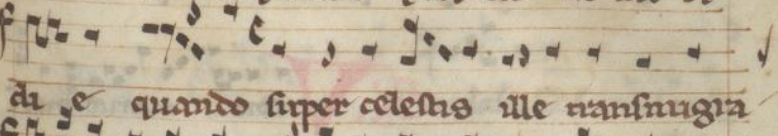 di e quando super celestis ille transmigra